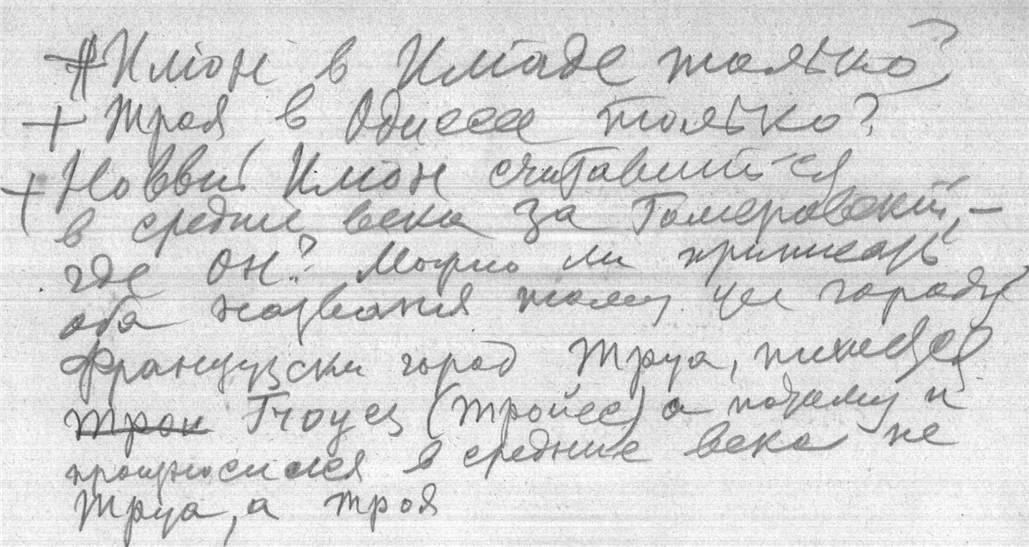 + Илион в Илиаде только?
+ Троя в Одиссее только?
+ Новый Илион считавшийся
в средние века за Гомеровский, —
где он? Можно ли приписать
оба названия тому же городу
Французски город Труа, пишется
Трои Troyes (Тройес) а потому и
произносился в средние века не
Труа, а Троя